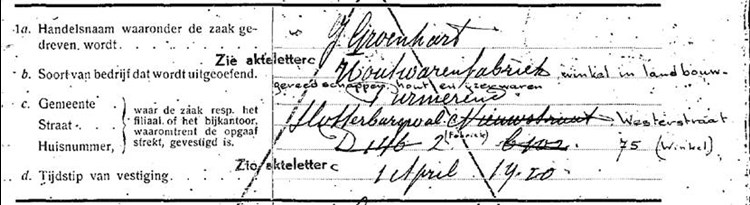 1a. Handelsnaam waaronder de zaak ge-
dreven, wordt. J Groenhart
Zie akteletter c
b. Soort van bedrijf dat wordt uitgeoefend. Houtwarenfabriek winkel in landbouw-
gereedschappen, hout en ijzerwaren
c. Gemeente waar de zaak resp. het Purmerend
Straat filiaal of het bijkantoor, waaromtrent de opgaaf Slotterburgwal Nieuwstraat Westerstraat
Huisnummer, strekt, gevestigd is. D 146 2 (Fabriek) 75 (Winkel)
Zie akteletter c
d. Tijdstip van vestiging. 1 April 1920